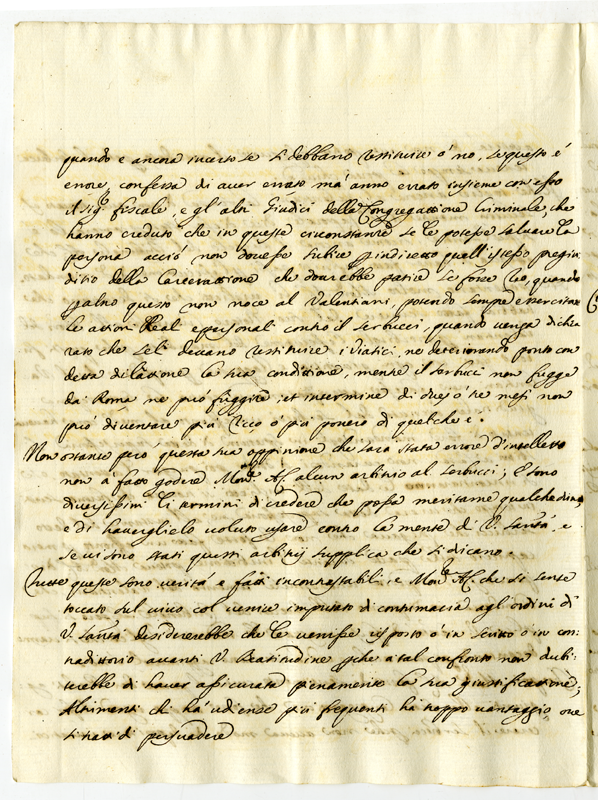 quando e ancora incerto se si debbano restituire ò nò, se questo é
errore, confessa di aver errato mà anno errato insieme con esso
il sig.r fiscale, e gl'altri Giudici della Congregazione Criminale, che
hanno creduto che in queste circonstanze se le potesse salvare la
persona acciò non dovesse subire p indiretto quell'istesso pregiu
ditio della Carcerazione che dovrebbe patire se fosse reo, quando
p altro questo non noce al Valentini, potendo sempre exercitare
le actioni Reali e personali contro il Serbucci, quando venga dichia
rato che seli devano restituire i Viatici, ne deteriorando punto con
detta dilatione la sua conditione, mentre il Serbucci non fugge
da Roma ne può fuggire, et in termine di due, ò tre mesi non
può diventare più ricco ò più povero di quello che è.
Non ostante però questa sua oppinione che sarà stata errore d'intelletto
non à fatto godere Mons.re alcun arbitrio al Serbucci; E sono
diversissimi li termini di credere che possa meritarne qualcheduno,
e di haverglielo voluto usare contro la mente di V. Santà, e
se vi sono stati questi arbitrij supplica che si dicano.
Tutte queste sono verità e fatti incontrastabili, e Mons.re che si sente
toccato sul vivo col venire imputato di contumacia agl'ordini di
V. Santà desidererebbe che le venisse risposto ò in scritto o in con
tradittorio avanti V. Beatitudine p che a tal confronto non dubi
terebbe di haver assicurata pienamente la sua giustificatione;
Altrimenti chi hà udienze più frequenti ha troppo vantaggio ove
si tratti di persuadere